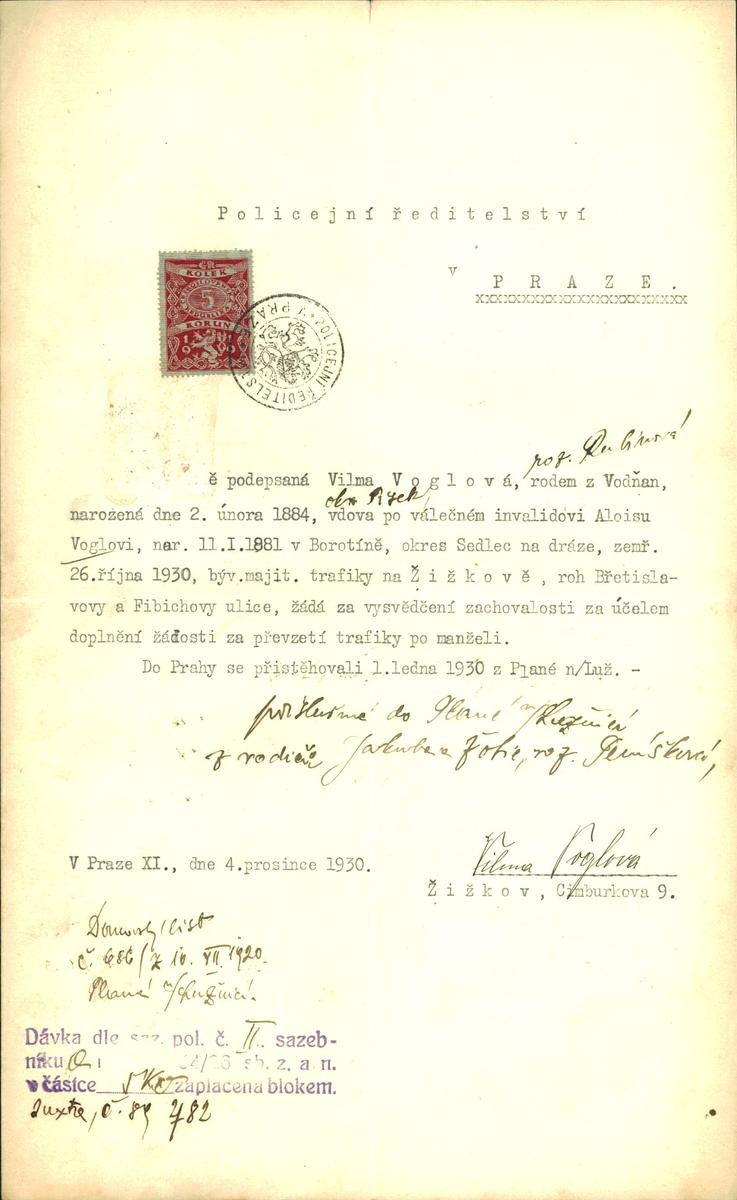 Policejní ředitelství
v PRAZE.
xxxxxxxxxxxxxxxxxxxxxxxxxx
KOLEK
5
KORUN
POLICEJNÍ ŘEDITELSTV V PRAZE
roz. Rubínová
ě podepsaná Vilma Voglová, rodem z Vodňan,
okr. Písek,
narozená dne 2. února 1884, vdova po válečném invalidovi Aloisu
Voglovi, nar. 11.I.1881 v Borotíně, okres Sedlec na dráze, zemř.
26.října 1930, býv.majit. trafiky na Žižkově, roh Břetisla-
vovy a Fibichovy ulice, žádá za vysvědčení zachovalosti za účelem
doplnění žádosti za převzetí trafiky po manželi.
Do Prahy se přistěhovali 1.ledna 1930 z Plané n/Luž. -
do Plané n/Lužnicí
z rodičů Jakuba a Žofie, roz.
V Praze XI., dne 4.prosince 1930.
Vilma Voglová
Žižkov, Cimburkova 9.
Domovský list
č. 686/z 10. VII. 1920.
Planá n/Lužnicí.
Dávka dle saz. pol. č. II. sazeb-
níku 4/26 sb. z. a n.
v částce 5 Kč zaplacena blokem.
Juxta, č. 89 782